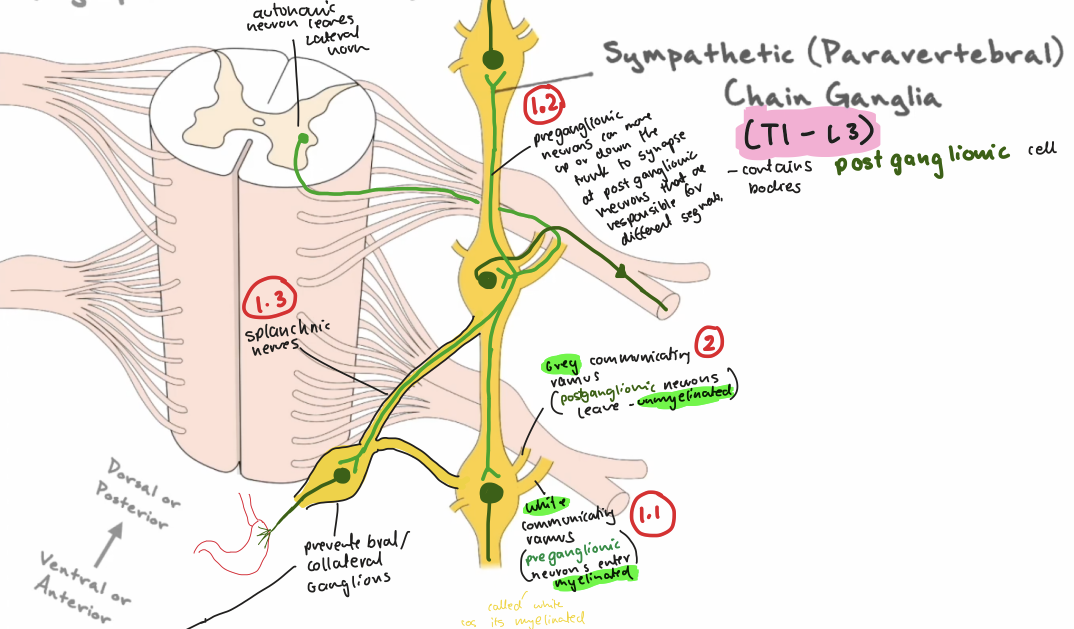 autonomic
neuron leaves
lateral
horn
Sympathetic (Paravertebral)
Chain Ganglia
(T1 - L3)
- contains postganglionic cell
bodies
1.2
preganglionic
neurons can move
up or down the
trunk to synapse
at postganglionic
neurons that are
responsible for
different segments
1.3
splanchnic
nerves
Grey communicating
ramus
(postganglionic neurons
leave - unmyelinated)
2
white
communicating
ramus
(preganglionic
neurons enter
myelinated)
1.1
called white
cos its myelinated
prevetebral/
collateral
Ganglions
Dorsal or
Posterior
Ventral or
Anterior